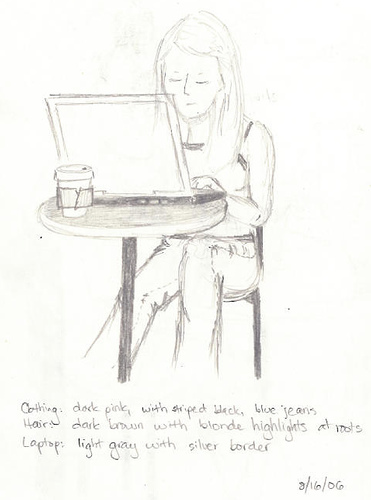 Clothing: dark pink, with striped black, blue jeans
Hair: dark brown with blonde highlights at roots
Laptop: light gray with silver border
8/16/06